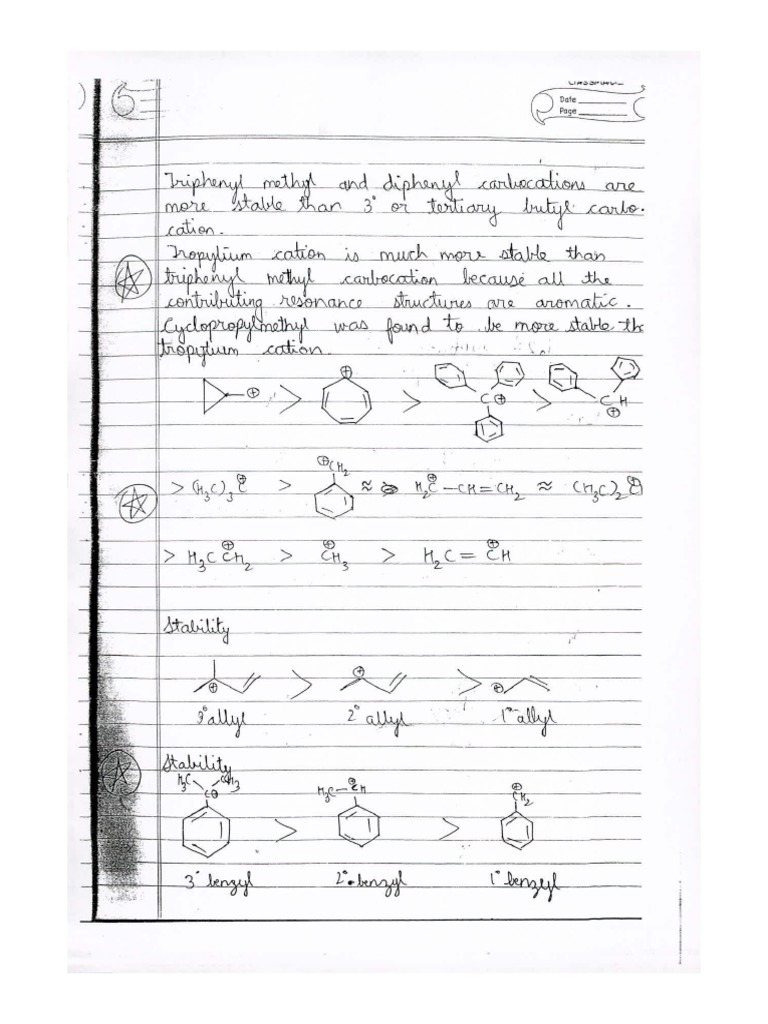 CLASSMATE
Date
Page
Triphenyl methyl and diphenyl carbocations are
more stable than 3° or tertiary butyl carbo-
cation.
Tropylium cation is much more stable than
triphenyl methyl carbocation because all the
contributing resonance structures are aromatic.
Cyclopropylmethyl was found to be more stable th
tropylium cation.
⊕ > ⊕ > C⊕ > CH ⊕
> (H₃C)₃C⊕ > ⊕CH₂ ≈ H₂C⊕—CH=CH₂ ≈ (CH₃C)₂C⊕
> H₃C C⊕H₂ > C⊕H₃ > H₂C = C⊕H
Stability
⊕ > ⊕ > ⊕
3° allyl 2° allyl 1° allyl
Stability
H₃C CH₃ C⊕ > H₃C—C⊕H > C⊕H₂
3° benzyl 2° benzyl 1° benzyl